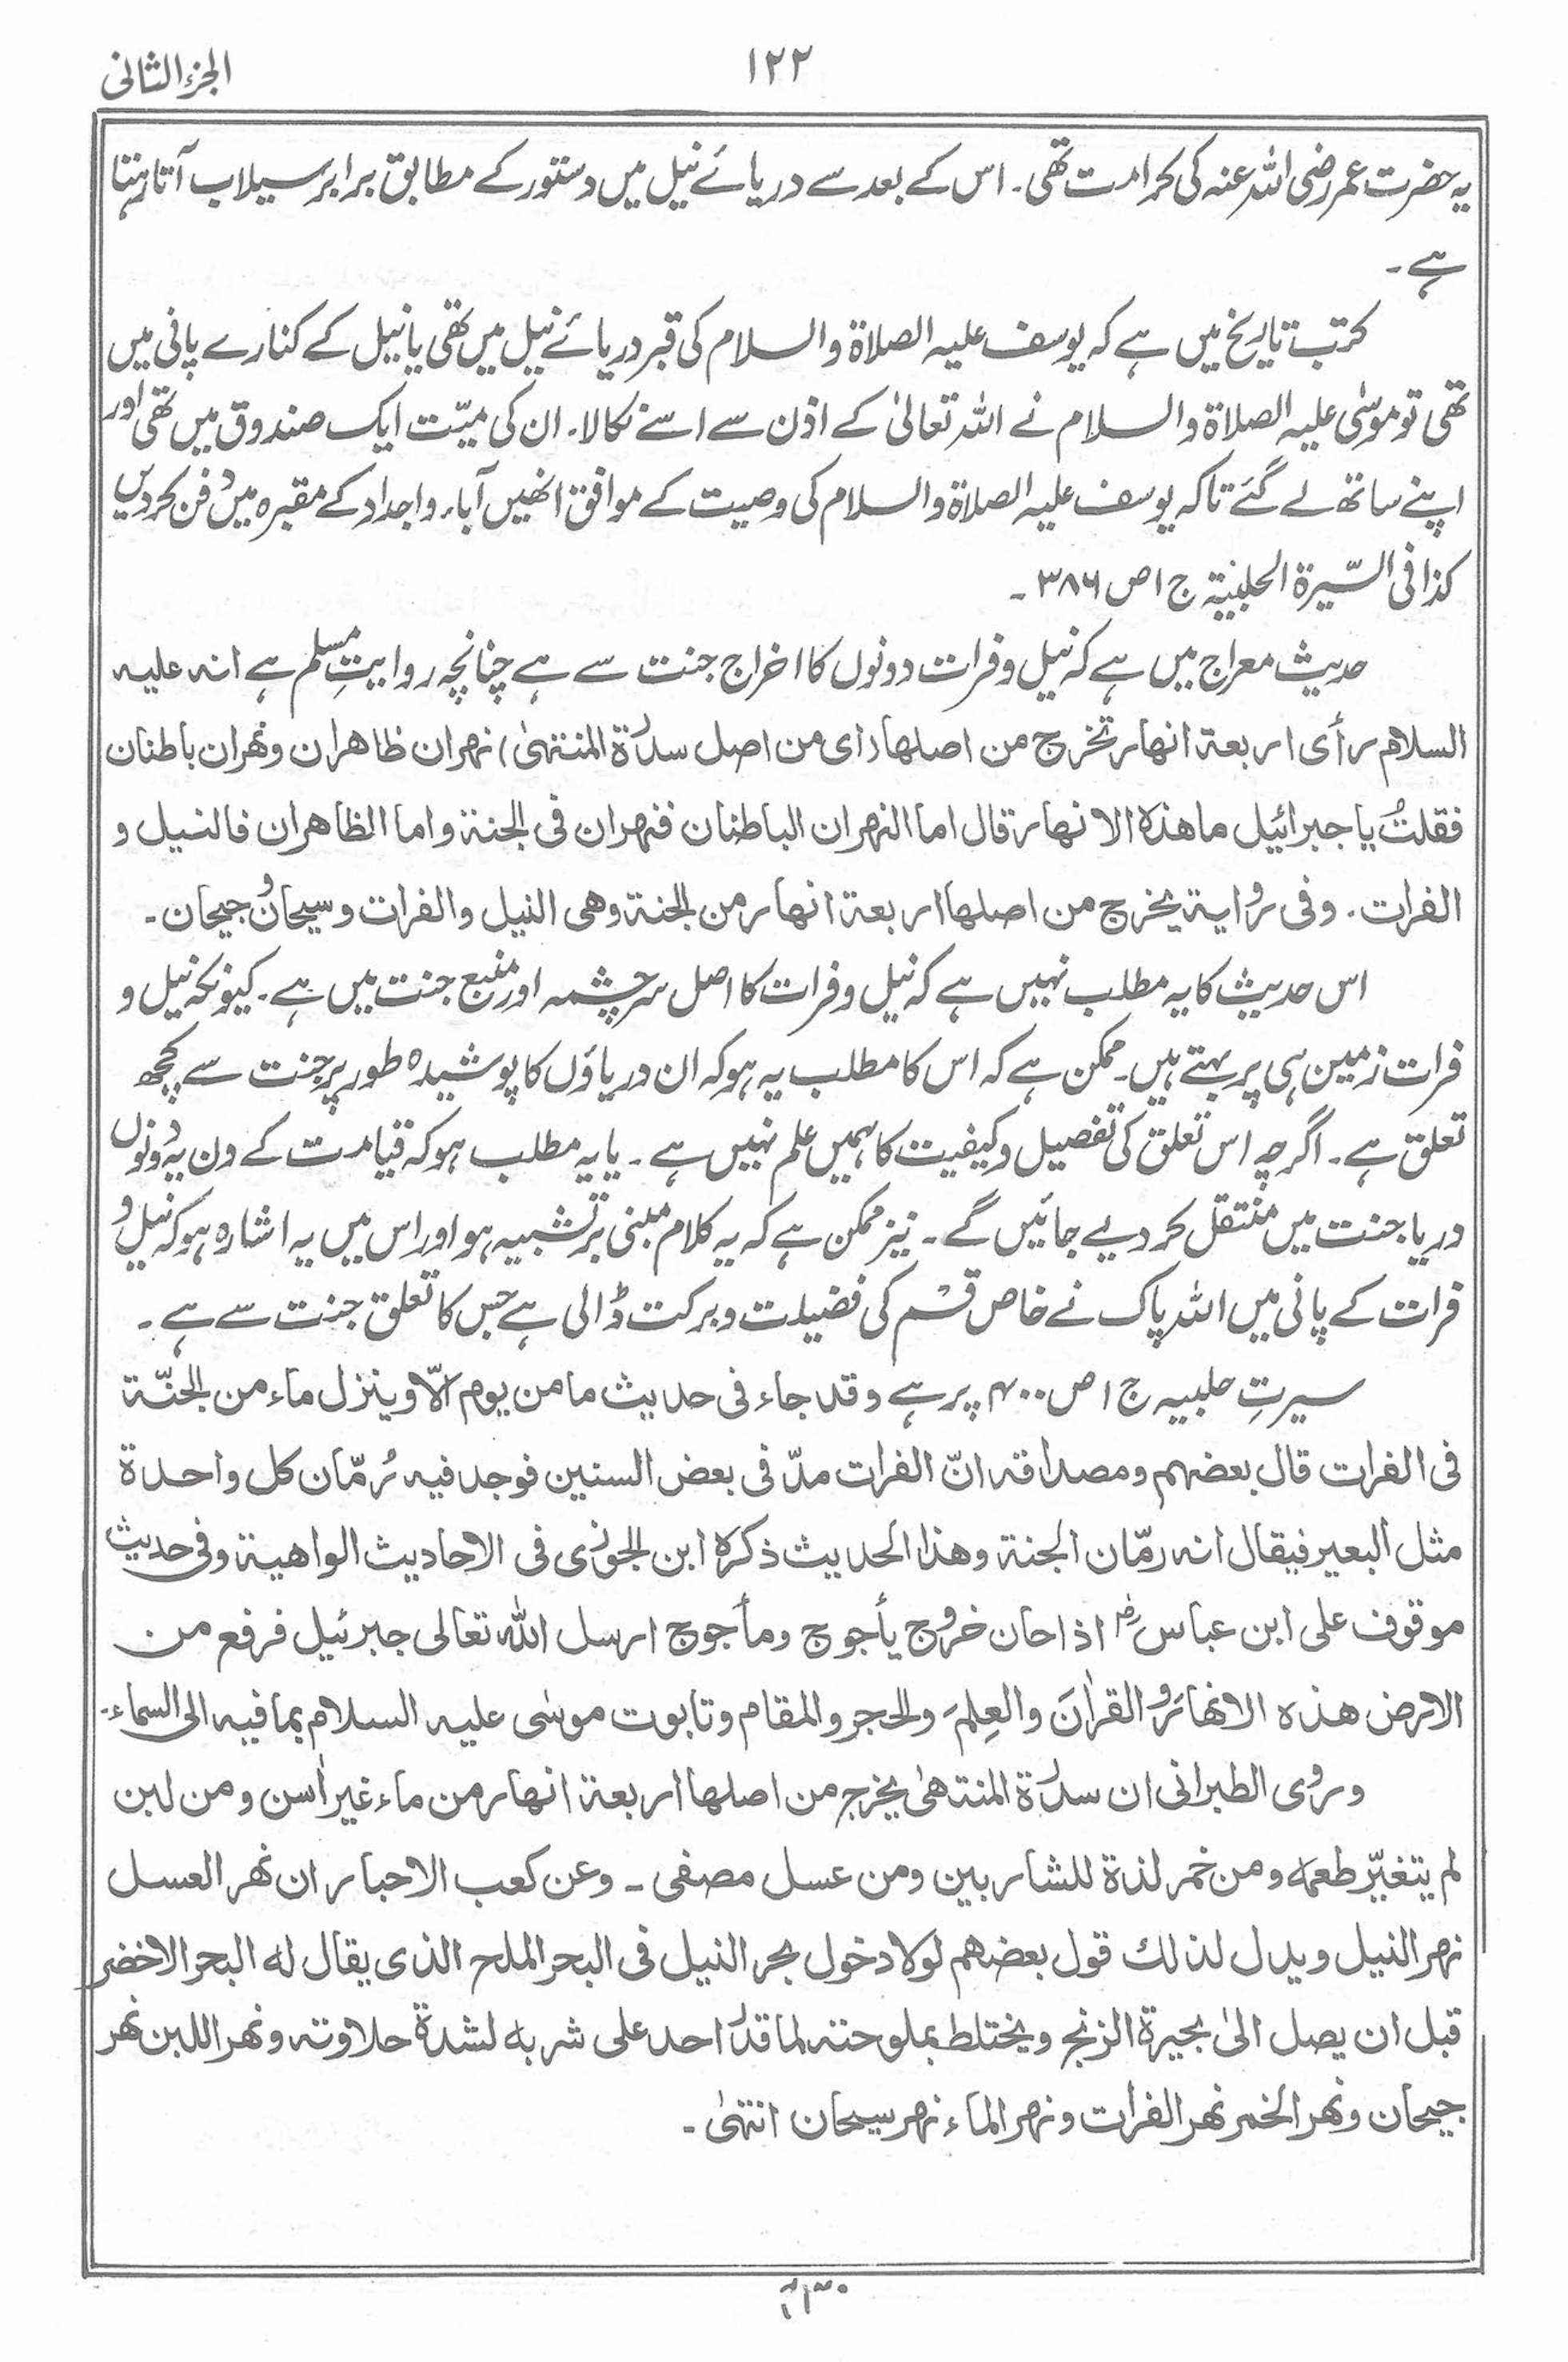 ۱۲۲
الجزء الثانی
یہ حضرت عمر رضی اللہ عنہ کی کرامت تھی۔ اس کے بعد سے دریائے نیل میں دستور کے مطابق برابر سیلاب آتا رہتا
ہے۔
کتب تاریخ میں ہے کہ یوسف علیہ الصلاۃ والسلام کی قبر دریائے نیل میں تھی یا نیل کے کنارے پانی میں
تھی تو موسیٰ علیہ الصلاۃ والسلام نے اللہ تعالیٰ کے اذن سے اسے نکالا۔ ان کی میّت ایک صندوق میں تھی اور
اپنے ساتھ لے گئے تاکہ یوسف علیہ الصلاۃ والسلام کی وصیت کے موافق انھیں آباء واجداد کے مقبرہ میں دفن کردیں
کذا فی السّیرۃ الحلبیۃ ج ۱ ص ۳۸۶۔
حدیث معراج میں ہے کہ نیل و فرات دونوں کا اخراج جنت سے ہے چنانچہ روایتِ مسلم ہے انہ علیہ
السلام رأی اربعۃ انھار تخرج من اصلھا (ای من اصل سدرۃ المنتھیٰ) نھران ظاھران ونھران باطنان
فقلتُ یا جبرائیل ما ھذہ الانھار قال اما النھران الباطنان فنھران فی الجنۃ واما الظاھران فالنیل و
الفرات۔ وفی روایۃ یخرج من اصلھا اربعۃ انھار من الجنۃ وھی النیل والفرات وسیحان و جیحان۔
اس حدیث کا یہ مطلب نہیں ہے کہ نیل و فرات کا اصل سرچشمہ اور منبع جنت میں ہے۔ کیونکہ نیل و
فرات زمین ہی پر بہتے ہیں۔ ممکن ہے کہ اس کا مطلب یہ ہو کہ ان دریاؤں کا پوشیدہ طور پر جنت سے کچھ
تعلق ہے۔ اگرچہ اس تعلق کی تفصیل و کیفیت کا ہمیں علم نہیں ہے۔ یا یہ مطلب ہو کہ قیامت کے دن یہ دونوں
دریا جنت میں منتقل کردیے جائیں گے۔ نیز ممکن ہے کہ یہ کلام مبنی بر تشبیہ ہو اور اس میں یہ اشارہ ہو کہ نیل و
فرات کے پانی میں اللہ پاک نے خاص قسم کی فضیلت و برکت ڈالی ہے جس کا تعلق جنت سے ہے۔
سیرتِ حلبیہ ج ۱ ص ۴۰۰ پر ہے وقد جاء فی حدیث ما من یوم الّا وینزل ماء من الجنّۃ
فی الفرات قال بعضھم ومصداقہ انّ الفرات مدّ فی بعض السنین فوجد فیہ رُمّان کل واحدۃ
مثل البعیر فیقال انہ رمّان الجنۃ وھذا الحدیث ذکرہ ابن الجوزی فی الاحادیث الواھیۃ وفی حدیث
موقوف علی ابن عباس رض اذا حان خروج یأجوج ومأجوج ارسل اللہ تعالی جبرئیل فرفع من
الارض ھذہ الانھارَ و القراٰنَ والعِلمَ والحجر والمقام وتابوت موسٰی علیہ السلام بما فیہ الی السماء۔
وروی الطبرانی ان سدرۃ المنتھیٰ یخرج من اصلھا اربعۃ انھار من ماء غیر اٰسن ومن لبن
لم یتغیّر طعمہ ومن خمر لذۃ للشاربین ومن عسل مصفی ۔ وعن کعب الاحبار ان نھر العسل
نھر النیل ویدل لذلك قول بعضھم لولا دخول بحر النیل فی البحر الملح الذی یقال لہ البحر الاخضر
قبل ان یصل الیٰ بحیرۃ الزنج ویختلط بملوحتہ لما قدر احد علی شربہ لشدۃ حلاوتہ ونھر اللبن نھر
جیحان ونھر الخمر نھر الفرات ونھر الماء نھر سیحان انتھیٰ۔